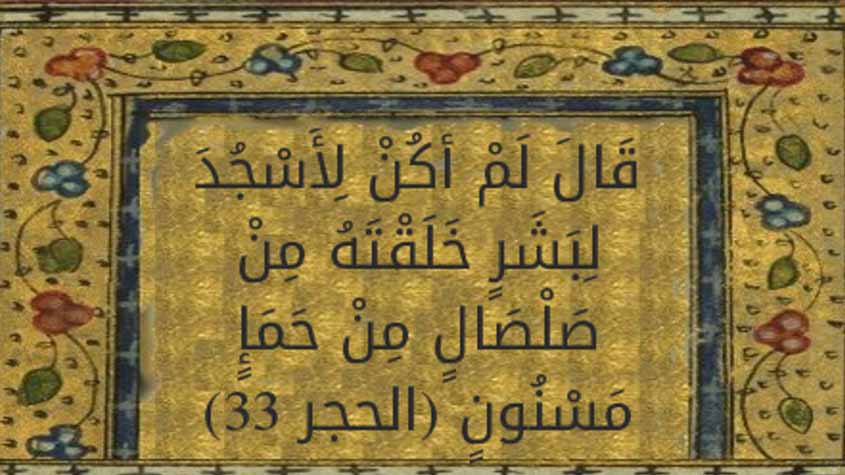 قَالَ لَمْ أكُنْ لِأَسْجُدَ
لِبَشَرٍ خَلَقْتَهُ مِنْ
صَلْصَالٍ مِنْ حَمَإٍ
مَسْنُونٍ (الحجر 33)